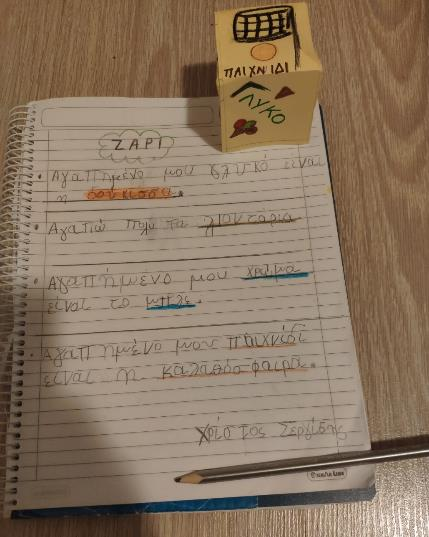 ΠΑΙΧΝΙΔΙ
ΓΛΥΚΟ
ΖΑΡΙ
• Αγαπημένο μου γλυκό είναι
η
• Αγαπώ πολύ τα λιοντάρια
• Αγαπήμένο μου χρώμα
είναι το μπλε.
• Αγαπημένο μου παιχνίδι
είναι η καλαθόσφαιρα.
Χρίστος Σεργίδης